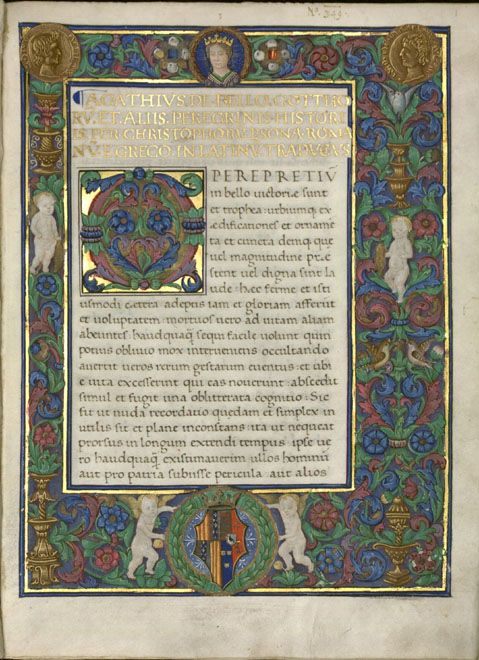 No. 349.
AGATHIVS·DE·BELLO·GOTTHO
RV̄·ET·ALIIS·PEREGRINIS·HISTORI
IS·PER·CHRISTOPHORV̄·PERSONA·ROMA
NV̄·E·GRECO·IN·LATINV̄·TRADVCTVS
OPERE PRETIV̄
in bello uictoriæ sunt
et trophea urbiumq; ex
ædificationes et orname
ta et cuncta demq; que
uel magnitudine præ
stent uel digna sint la
ude: hæc ferme et isti
usmodi cætera adeptus iam et gloriam afferut
et uoluptatem: mortuos uero ad uitam aliam
abeuntes: haudquaq̄ sequi facile uolunt quin
potius obliuio mox interueniens occultando
auertit ueros rerum gestarum euentus: et ubi
e uita excesserint qui eas nouerunt: abscedit
simul et fugit una oblitterata cognitio: Sic
fit ut nuda recordatio quedam et simplex in
utilis sit et plane inconstans: ita ut nequeat
prorsus in longum extendi tempus: ipse ue
ro haudquaq̄ existimauerim ullos hominū
aut pro patria subisse pericula aut alios